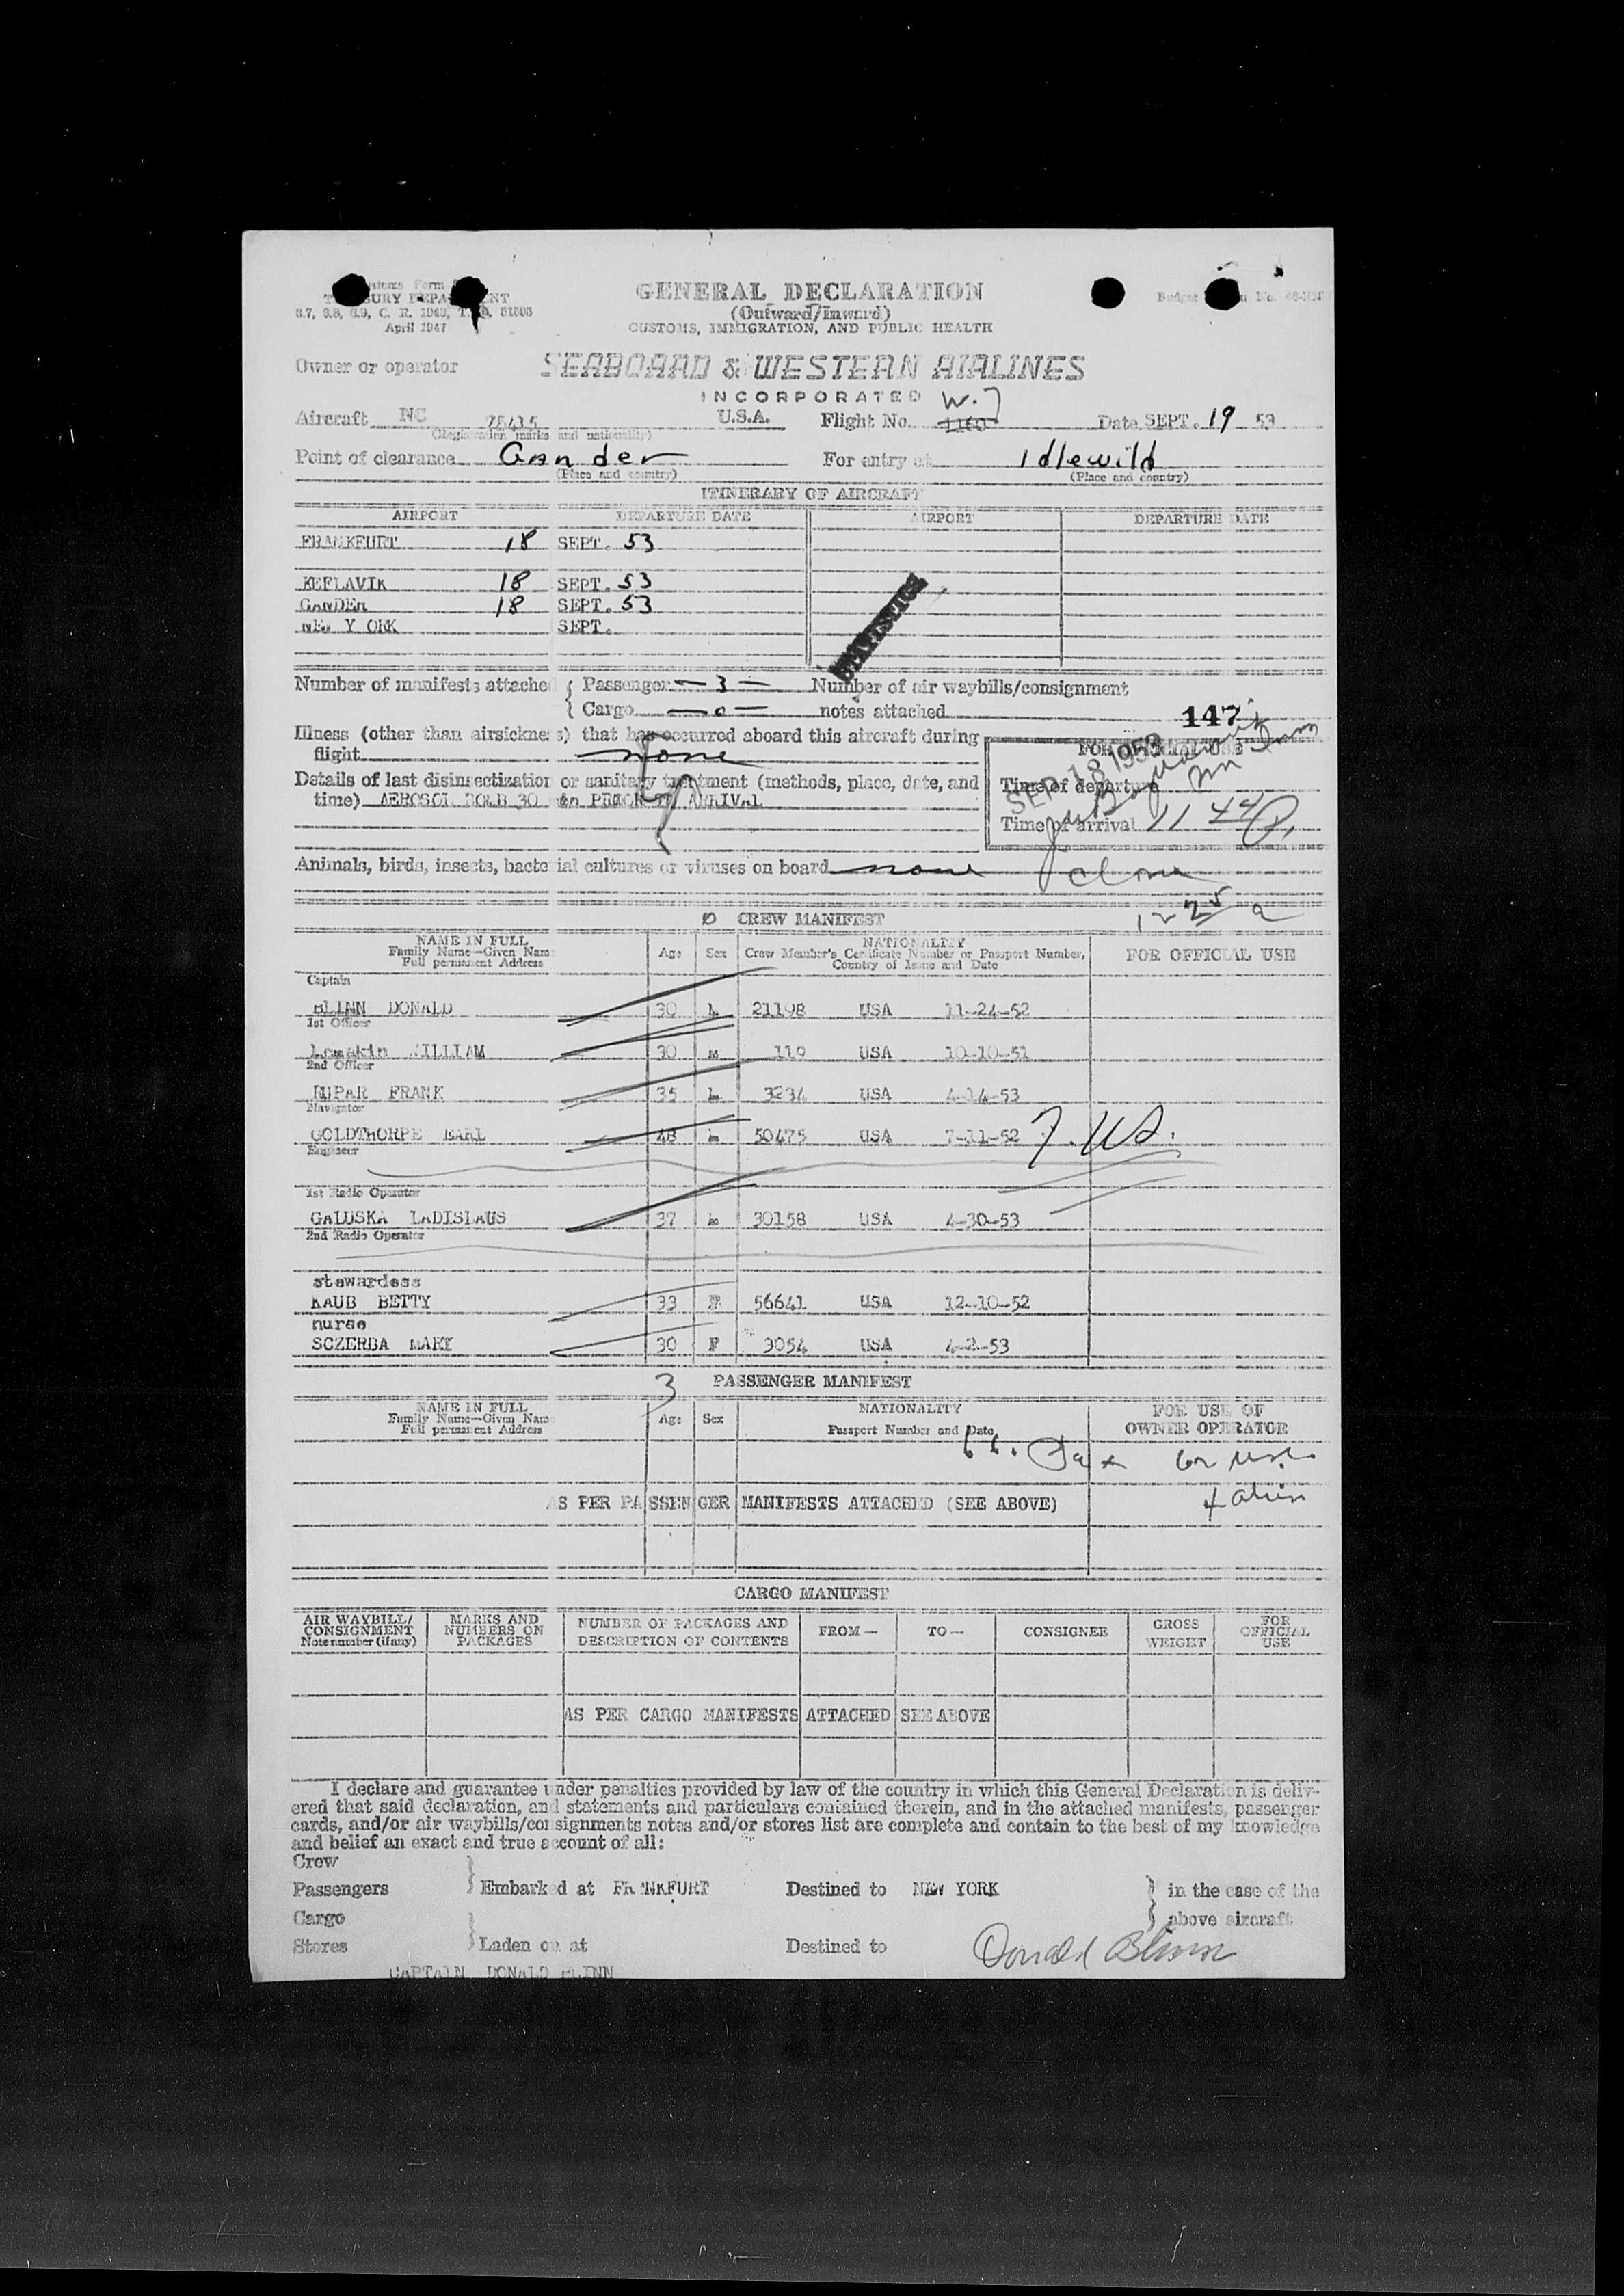 GENERAL DECLARATION
(Outward/Inward)
CUSTOMS, IMMIGRATION, AND PUBLIC HEALTH
April 1947
Owner or operator SEABOARD & WESTERN AIRLINES
INCORPORATED
Aircraft NC U.S.A. Flight No. Date SEPT. 19 53
(Registration marks and nationality)
Point of clearance Gander For entry at Idlewild
(Place and country) (Place and country)
ITINERARY OF AIRCRAFT
AIRPORT DEPARTURE DATE AIRPORT DEPARTURE DATE
FRANKFURT 18 SEPT. 53
KEFLAVIK 18 SEPT. 53
GANDER 18 SEPT. 53
NEW YORK SEPT.
STATISTICS
Number of manifests attached { Passenger — 3 — Number of air waybills/consignment
{ Cargo — 0 — notes attached
147
Illness (other than airsickness) that has occurred aboard this aircraft during
flight none
FOR OFFICIAL USE
SEP 18 1953
Details of last disinsectization or sanitary treatment (methods, place, date, and
time) AEROSOL BOMB 30 PRIOR TO ARRIVAL
Time of departure
Time of arrival 11 44 P
Animals, birds, insects, bacterial cultures or viruses on board none
1225 a
0 CREW MANIFEST
NAME IN FULL
Family Name—Given Name
Full permanent Address
Age Sex
NATIONALITY
Crew Member's Certificate Number or Passport Number,
Country of Issue and Date
FOR OFFICIAL USE
Captain
BLINN DONALD 30 M 21198 USA 11-24-52
1st Officer
WILLIAM 30 M 119 USA 10-10-51
2nd Officer
FRANK 35 M 3234 USA 4-14-53
Navigator
GOLDTHORPE EARL 48 M 50475 USA 7-11-52
Engineer
1st Radio Operator
GALUSKA LADISLAUS 37 M 30158 USA 4-30-53
2nd Radio Operator
stewardess
KAUB BETTY 33 F 56641 USA 12-10-52
nurse
SCZERBA MARY 30 F 3054 USA 4-2-53
3 PASSENGER MANIFEST
NAME IN FULL
Family Name—Given Name
Full permanent Address
Age Sex
NATIONALITY
Passport Number and Date
FOR USE OF
OWNER OPERATOR
AS PER PASSENGER MANIFESTS ATTACHED (SEE ABOVE)
CARGO MANIFEST
AIR WAYBILL/
CONSIGNMENT
Note number (if any)
MARKS AND
NUMBERS ON
PACKAGES
NUMBER OF PACKAGES AND
DESCRIPTION OF CONTENTS
FROM—
TO—
CONSIGNEE
GROSS
WEIGHT
FOR
OFFICIAL
USE
AS PER CARGO MANIFESTS ATTACHED SEE ABOVE
I declare and guarantee under penalties provided by law of the country in which this General Declaration is deliv-
ered that said declaration, and statements and particulars contained therein, and in the attached manifests, passenger
cards, and/or air waybills/consignments notes and/or stores list are complete and contain to the best of my knowledge
and belief an exact and true account of all:
Crew
Passengers } Embarked at FRANKFURT Destined to NEW YORK } in the case of the
Cargo } above aircraft
Stores } Laden on at Destined to Donald Blinn
CAPTAIN DONALD BLINN